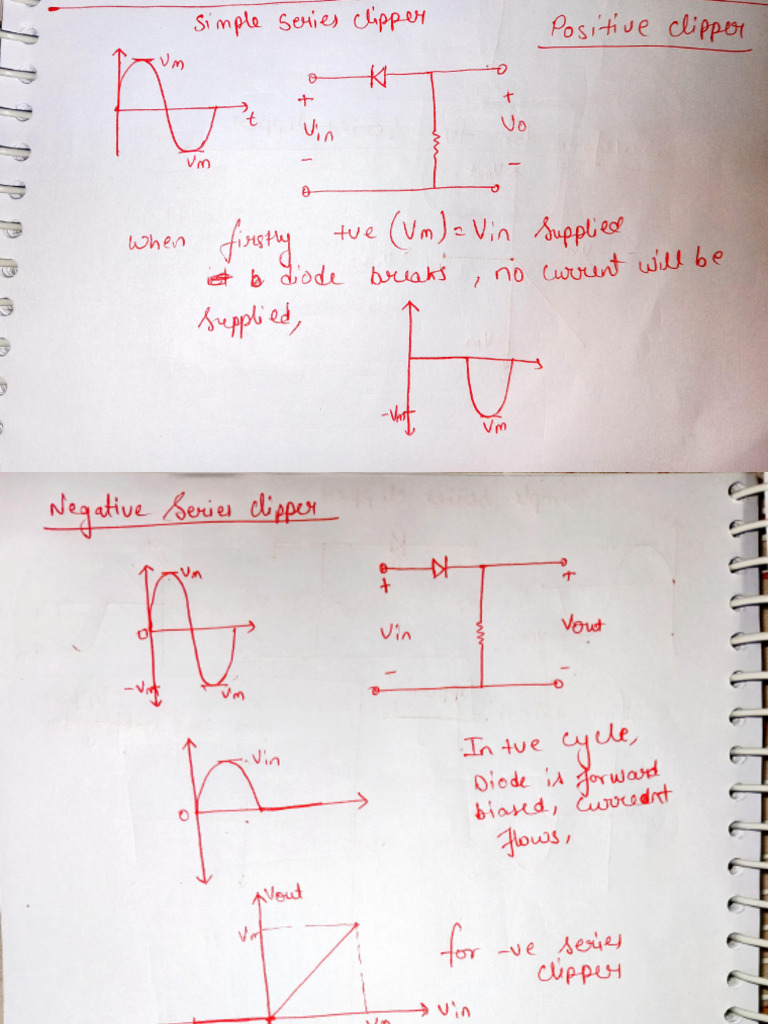 Simple series clipper
Positive clipper
Vm
t
Vm
+
Vin
-
+
Vo
-
When firstly +ve (Vm) = Vin supplied
diode breaks, no current will be
supplied,
-Vm
Vm
Negative Series clipper
Vm
0
-Vm
Vm
+
Vin
-
+
Vout
-
Vin
0
In +ve cycle,
Diode is forward
biased, Current
flows,
Vout
Vm
Vin
Vm
for -ve series
clipper